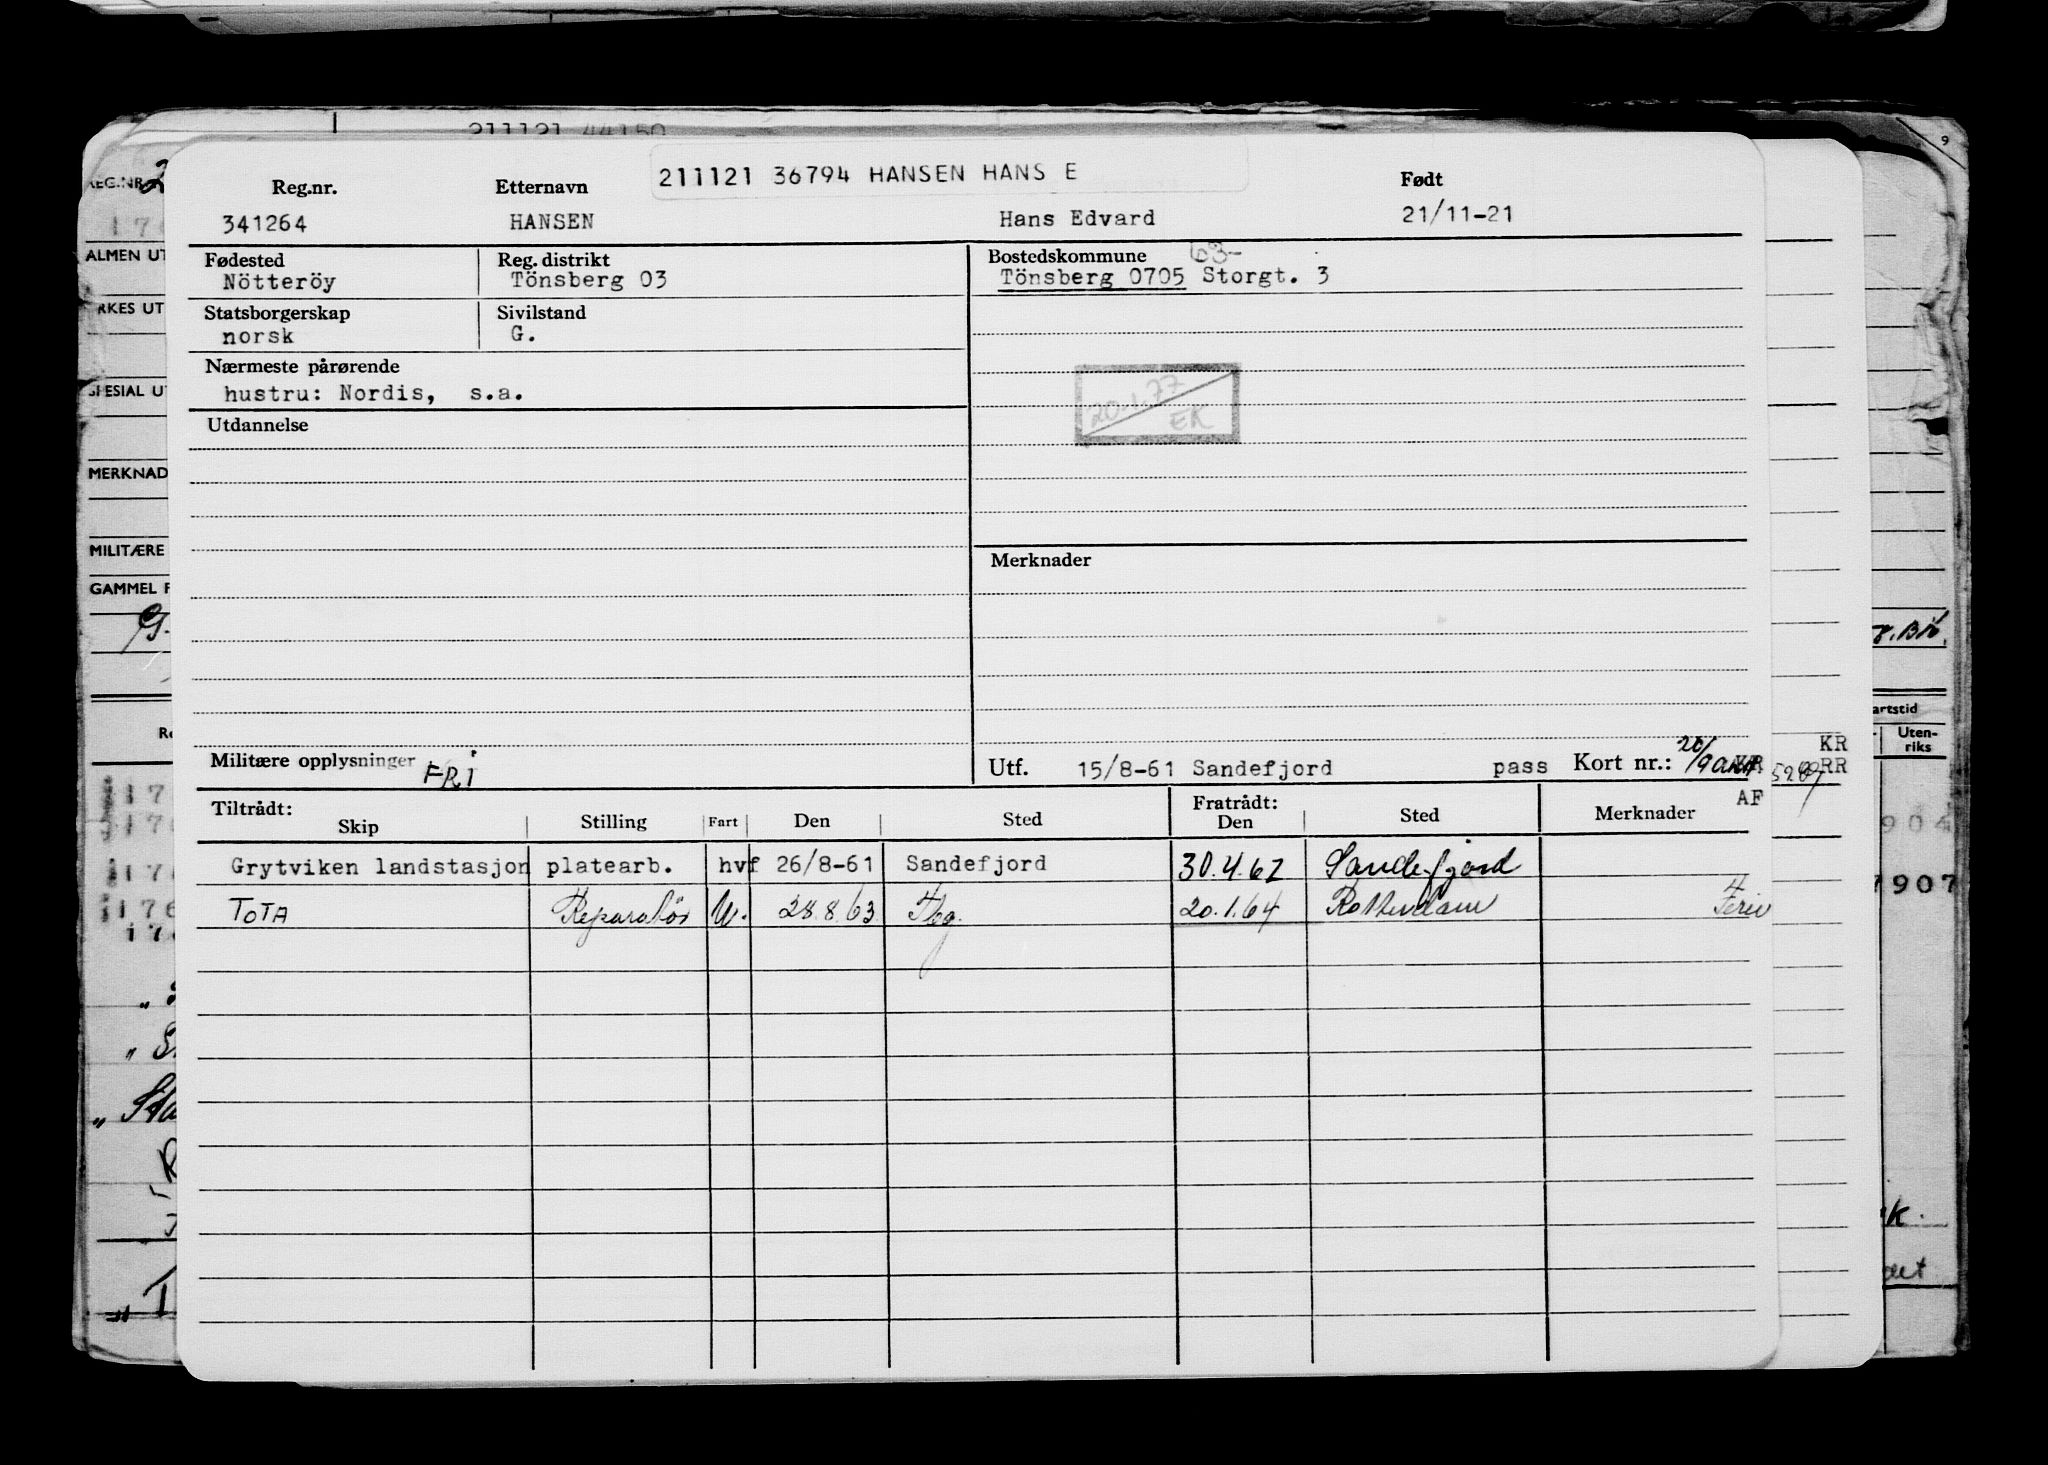 211121 44150
211121 36794 HANSEN HANS E
Reg.nr. Etternavn Født
341264 HANSEN Hans Edvard 21/11-21
Fødested Reg. distrikt Bostedskommune 63-
Nötteröy Tönsberg 03 Tönsberg 0705 Storgt. 3
Statsborgerskap Sivilstand
norsk G.
Nærmeste pårørende
hustru: Nordis, s.a.
20.1.77
EK
Utdannelse
Merknader
Militære opplysninger FRI
Utf. 15/8-61 Sandefjord pass Kort nr.:
Tiltrådt: Fratrådt:
Skip Stilling Fart Den Sted Den Sted Merknader
Grytviken landstasjon platearb. hvf 26/8-61 Sandefjord 30.4.62 Sandefjord
TOTA Reparatör U. 28.8.63 Tbg. 20.1.64 Rotterdam Ferie
REG.NR.
ALMEN UT
YRKES UT
SPESIAL UT
MERKNAD
MILITÆRE
GAMMEL F
9
artstid
Uten-
riks
KR
RR
AF
904
7907